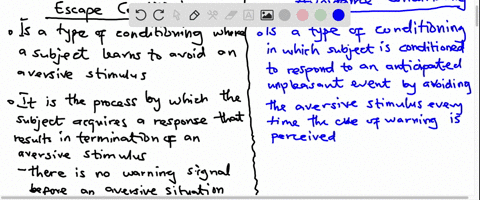 Escape
• Is a type of conditioning where
a subject learns to avoid an
aversive stimulus
• It is the process by which the
subject acquires a response that
results in termination of an
aversive stimulus
- there is no warning signal
before an aversive situation
• Is a type of conditioning
in which subject is conditioned
to respond to an anticipated
unpleasant event by avoiding
the aversive stimulus every
time the cue of warning is
perceived